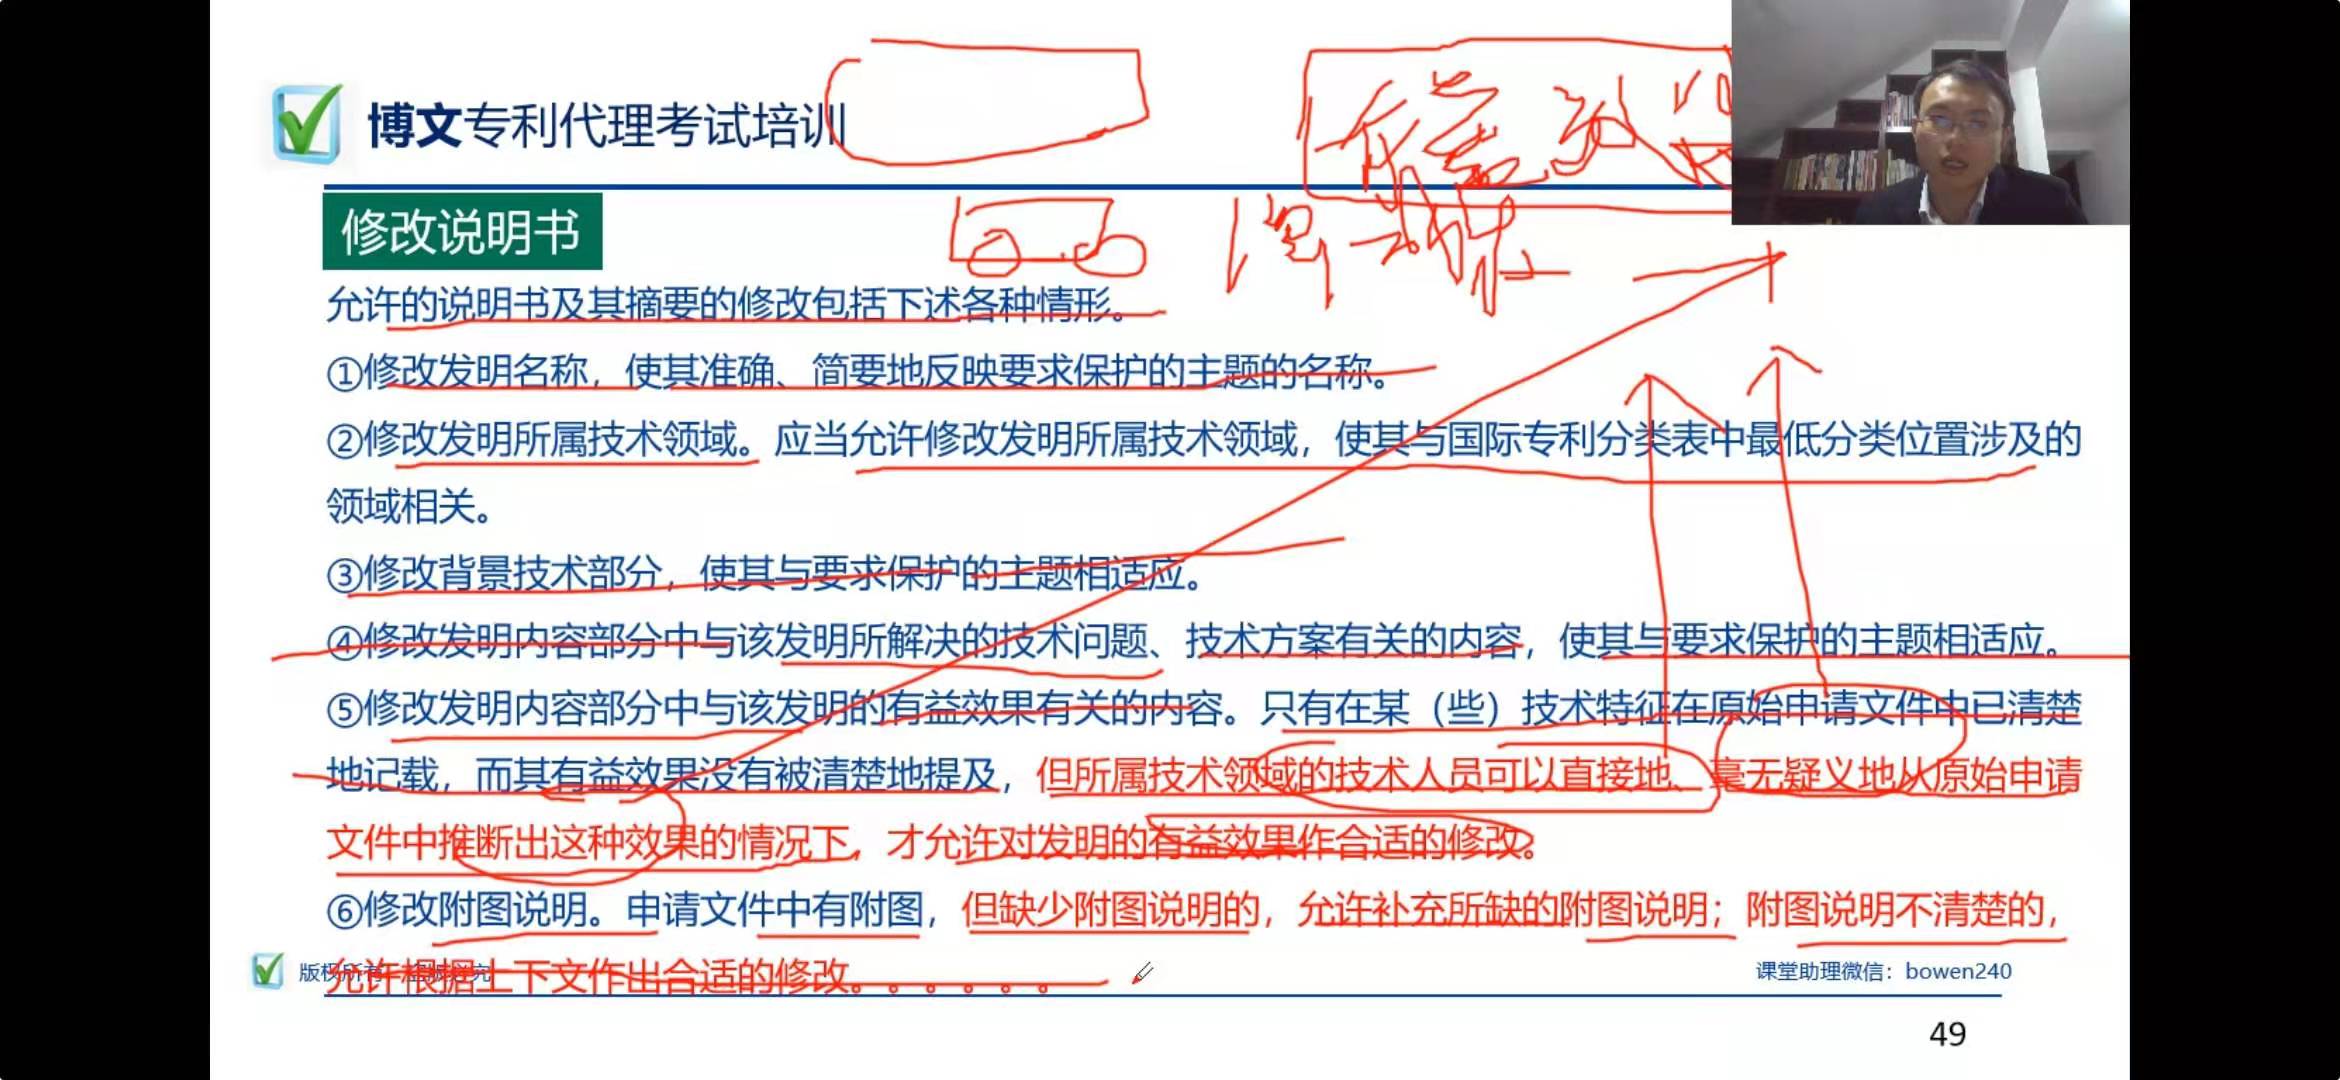 博文专利代理考试培训
修改说明书
允许的说明书及其摘要的修改包括下述各种情形。
①修改发明名称，使其准确、简要地反映要求保护的主题的名称。
②修改发明所属技术领域。应当允许修改发明所属技术领域，使其与国际专利分类表中最低分类位置涉及的
领域相关。
③修改背景技术部分，使其与要求保护的主题相适应。
④修改发明内容部分中与该发明所解决的技术问题、技术方案有关的内容，使其与要求保护的主题相适应。
⑤修改发明内容部分中与该发明的有益效果有关的内容。只有在某（些）技术特征在原始申请文件中已清楚
地记载，而其有益效果没有被清楚地提及，但所属技术领域的技术人员可以直接地、毫无疑义地从原始申请
文件中推断出这种效果的情况下，才允许对发明的有益效果作合适的修改。
⑥修改附图说明。申请文件中有附图，但缺少附图说明的，允许补充所缺的附图说明；附图说明不清楚的，
允许根据上下文作出合适的修改。。。。。。
版权所有
课堂助理微信：bowen240
49